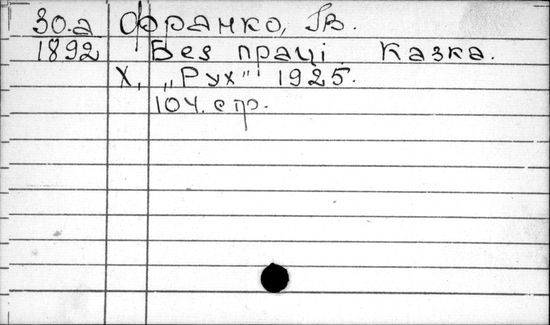 30.а Франко, Ів.
1892 Без праці Казка.
Х, „Рух" 1925.
104. стр.